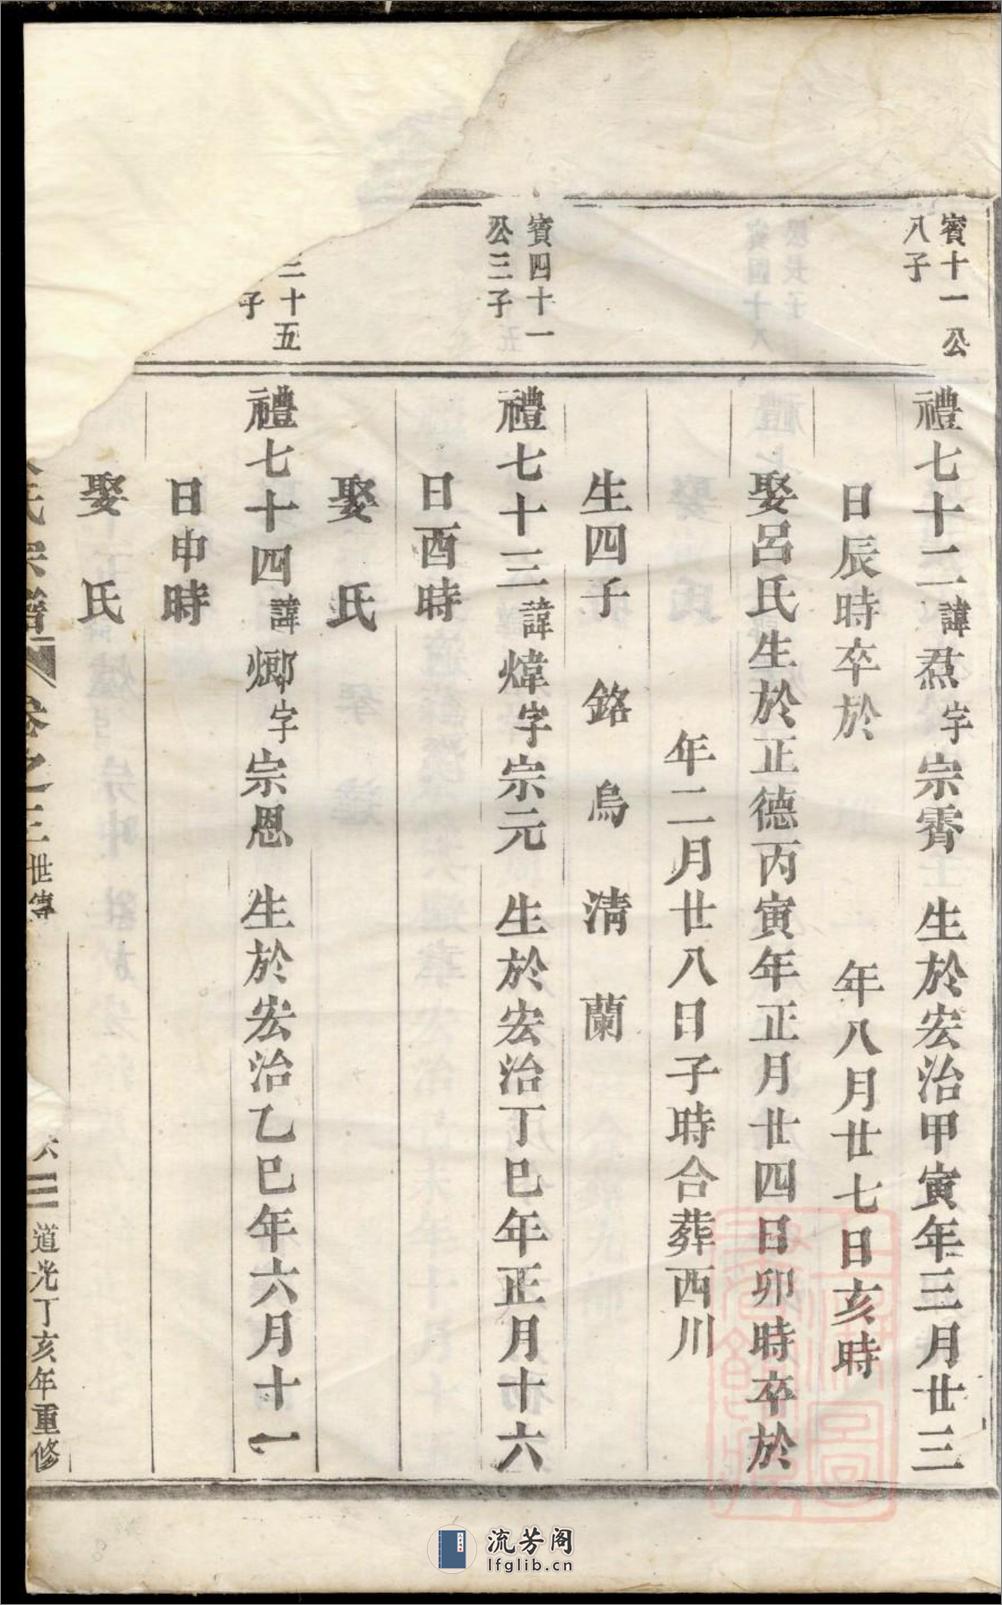 賓十一公
八子
禮七十二諱烝字宗霽 生於宏治甲寅年三月廿三
日辰時卒於 年八月廿七日亥時
娶呂氏生於正德丙寅年正月廿四日卯時卒於
年二月廿八日子時合葬西川
生四子 銘 烏 清 蘭
賓四十一
公三子
禮七十三諱煒字宗元 生於宏治丁巳年正月十六
日酉時
娶 氏
三十五
子
禮七十四諱字宗恩 生於宏治乙巳年六月十一
日申時
娶 氏
氏宗譜 卷之三 世傳 六 道光丁亥年重修
流芳阁
lfglib.cn